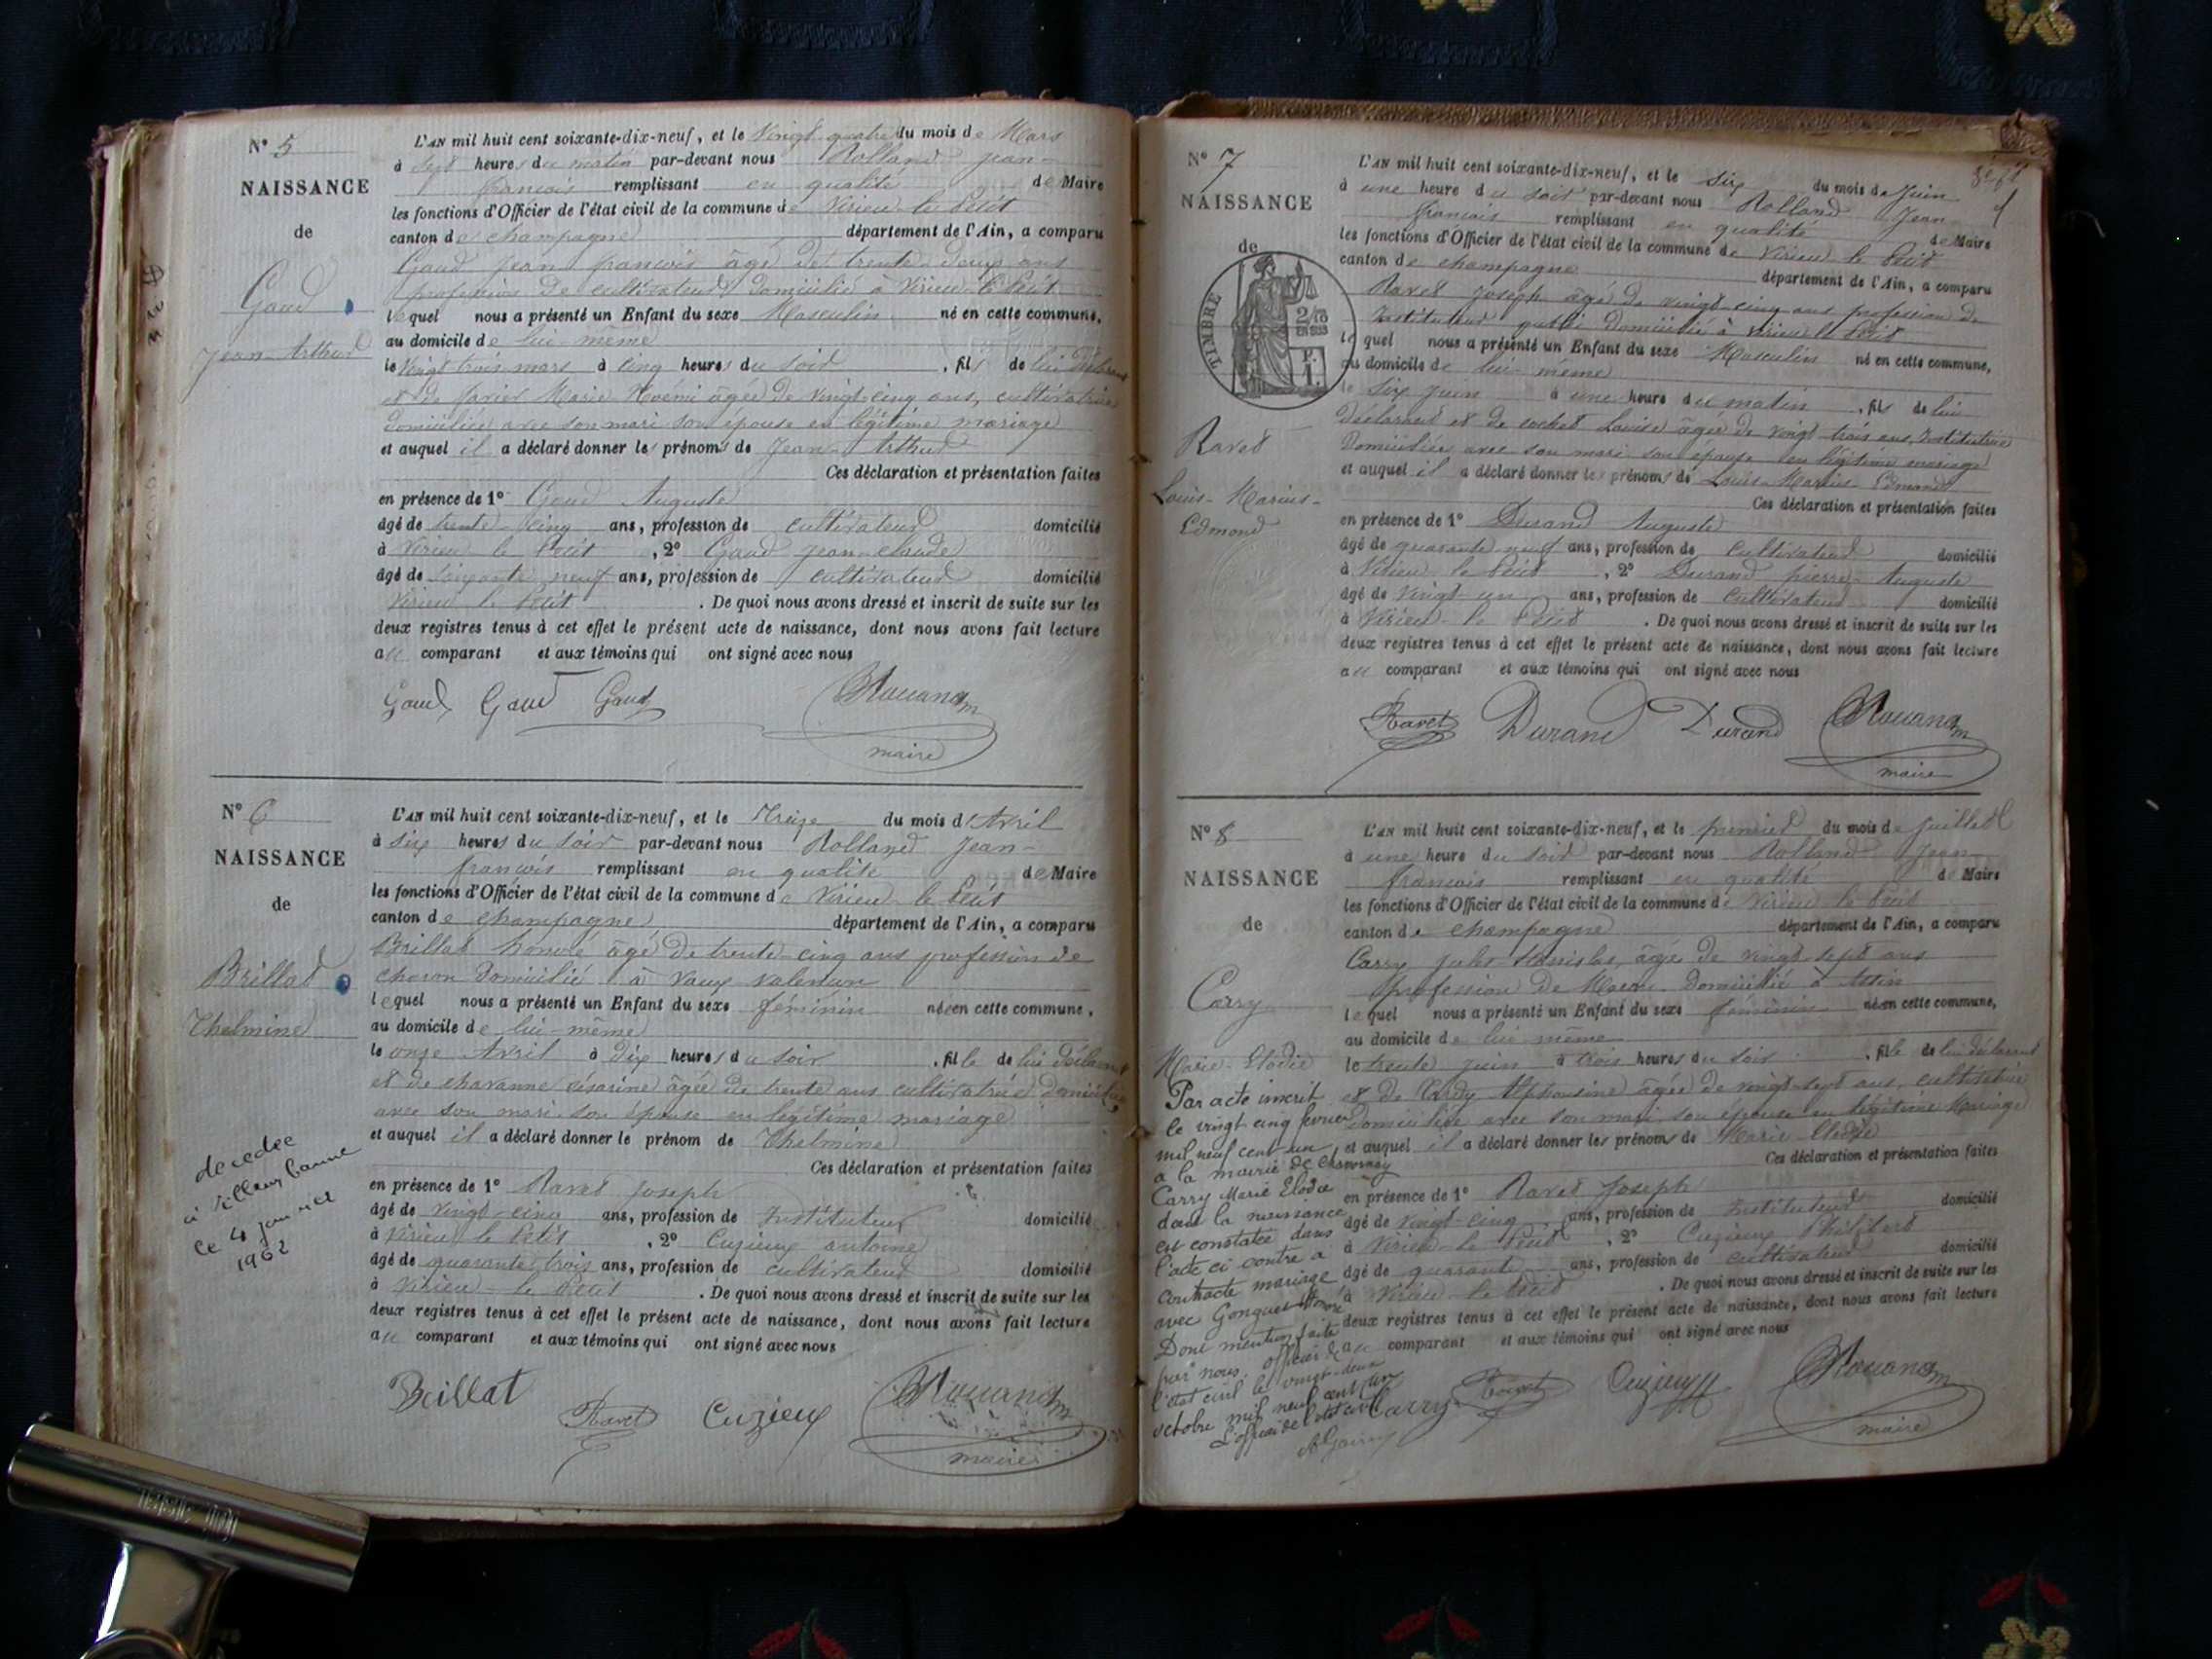 N° 5
NAISSANCE
de
Gaud
Jean-Arthur
L'AN mil huit cent soixante-dix-neuf, et le Vingt quatre du mois de Mars
à sept heures du matin par-devant nous Rolland Jean-
françois remplissant en qualité de Maire
les fonctions d'Officier de l'état civil de la commune de Virieu-le Petit
canton de champagne département de l'Ain, a comparu
Gaud Jean françois âgé de trente-deux ans
profession de cultivateur domicilié à Virieu-le Petit
lequel nous a présenté un Enfant du sexe Masculin né en cette commune,
au domicile de lui-même
le Vingt trois mars à cinq heures du soir , fils de lui déclarant
et de Marie Noémi âgée de vingt-cinq ans, cultivatrice
domiciliée avec son mari son épouse en légitime mariage
et auquel il a déclaré donner les prénoms de Jean-Arthur
Ces déclaration et présentation faites
en présence de 1° Gaud Auguste
âgé de trente-cinq ans, profession de cultivateur domicilié
à Virieu le Petit , 2° Gaud Jean-claude
âgé de soixante neuf ans, profession de cultivateur domicilié
Virieu le Petit . De quoi nous avons dressé et inscrit de suite sur les
deux registres tenus à cet effet le présent acte de naissance, dont nous avons fait lecture
au comparant et aux témoins qui ont signé avec nous
Gaud Gaud Gaud
maire
N° 6
NAISSANCE
de
Brillat
Thelmine
decedee
à Villeurbanne
le 4 janvier
1962
L'AN mil huit cent soixante-dix-neuf, et le Treize du mois d'Avril
à six heures du soir par-devant nous Rolland Jean-
françois remplissant en qualité de Maire
les fonctions d'Officier de l'état civil de la commune de Virieu-le Petit
canton de champagne département de l'Ain, a comparu
Brillat honoré âgé de trente-cinq ans profession de
charon domicilié à Vaux
lequel nous a présenté un Enfant du sexe féminin née en cette commune,
au domicile de lui-même
le onze Avril à dix heures du soir , fille de lui déclarant
et de chavanne césarine âgée de trente ans cultivatrice domiciliée
avec son mari son épouse en légitime mariage
et auquel il a déclaré donner le prénom de Thelmine
Ces déclaration et présentation faites
en présence de 1° Ravet Joseph
âgé de vingt-cinq ans, profession de Instituteur domicilié
à Virieu le Petit , 2° Cuzieux antoine
âgé de quarante trois ans, profession de cultivateur domicilié
à Virieu-le Petit . De quoi nous avons dressé et inscrit de suite sur les
deux registres tenus à cet effet le présent acte de naissance, dont nous avons fait lecture
au comparant et aux témoins qui ont signé avec nous
Brillat Ravet Cuzieux
maire
N° 7
NAISSANCE
de
TIMBRE
2/10
EN SUS
Ravet
Louis-Marius-
Edmond
L'AN mil huit cent soixante-dix-neuf, et le six du mois de Juin
à une heure du soir par-devant nous Rolland Jean
françois remplissant en qualité de Maire
les fonctions d'Officier de l'état civil de la commune de Virieu-le Petit
canton de champagne département de l'Ain, a comparu
Ravet Joseph âgé de vingt-cinq ans profession de
Instituteur public domicilié à Virieu le Petit
lequel nous a présenté un Enfant du sexe Masculin né en cette commune,
au domicile de lui-même
le six juin à une heure du matin , fils de lui
déclarant et de cochet Louise âgée de vingt trois ans, Institutrice
domiciliée avec son mari son épouse en légitime mariage
et auquel il a déclaré donner les prénoms de Louis-Marius-Edmond
Ces déclaration et présentation faites
en présence de 1° Durand Auguste
âgé de quarante neuf ans, profession de cultivateur domicilié
à Virieu-le Petit , 2° Durand pierre-Auguste
âgé de vingt un ans, profession de cultivateur domicilié
à Virieu-le Petit . De quoi nous avons dressé et inscrit de suite sur les
deux registres tenus à cet effet le présent acte de naissance, dont nous avons fait lecture
au comparant et aux témoins qui ont signé avec nous
Ravet Durand Durand
maire
N° 8
NAISSANCE
de
Carry
Marie-Elodie
Par acte inscrit
le vingt cinq fevrier
mil neuf cent un
à la mairie de
Carry Marie Elodie
dont la naissance
est constatée dans
l'acte ci contre a
contracté mariage
avec Gonguet
Dont mention faite
par nous, officier de
l'état civil le vingt-deux
octobre mil neuf cent un
L'officier de l'état civil
L'AN mil huit cent soixante-dix-neuf, et le premier du mois de Juillet
à une heure du soir par-devant nous Rolland Jean
françois remplissant en qualité de Maire
les fonctions d'Officier de l'état civil de la commune de Virieu-le Petit
canton de champagne département de l'Ain, a comparu
Carry Jules-Stanislas, âgé de vingt-sept ans
profession de Maçon domicilié à Assin
lequel nous a présenté un Enfant du sexe féminin née en cette commune,
au domicile de lui même
le trente juin à trois heures du soir , fille de lui déclarant
et de Alphonsine âgée de vingt-sept ans, cultivatrice
domiciliée avec son mari son épouse en légitime Mariage
et auquel il a déclaré donner les prénoms de Marie-Elodie
Ces déclaration et présentation faites
en présence de 1° Ravet Joseph
âgé de vingt-cinq ans, profession de Instituteur domicilié
à Virieu-le Petit , 2° Cuzieux Philibert
âgé de quarante ans, profession de cultivateur domicilié
à Virieu-le Petit . De quoi nous avons dressé et inscrit de suite sur les
deux registres tenus à cet effet le présent acte de naissance, dont nous avons fait lecture
au comparant et aux témoins qui ont signé avec nous
Carry Ravet Cuzieux
maire